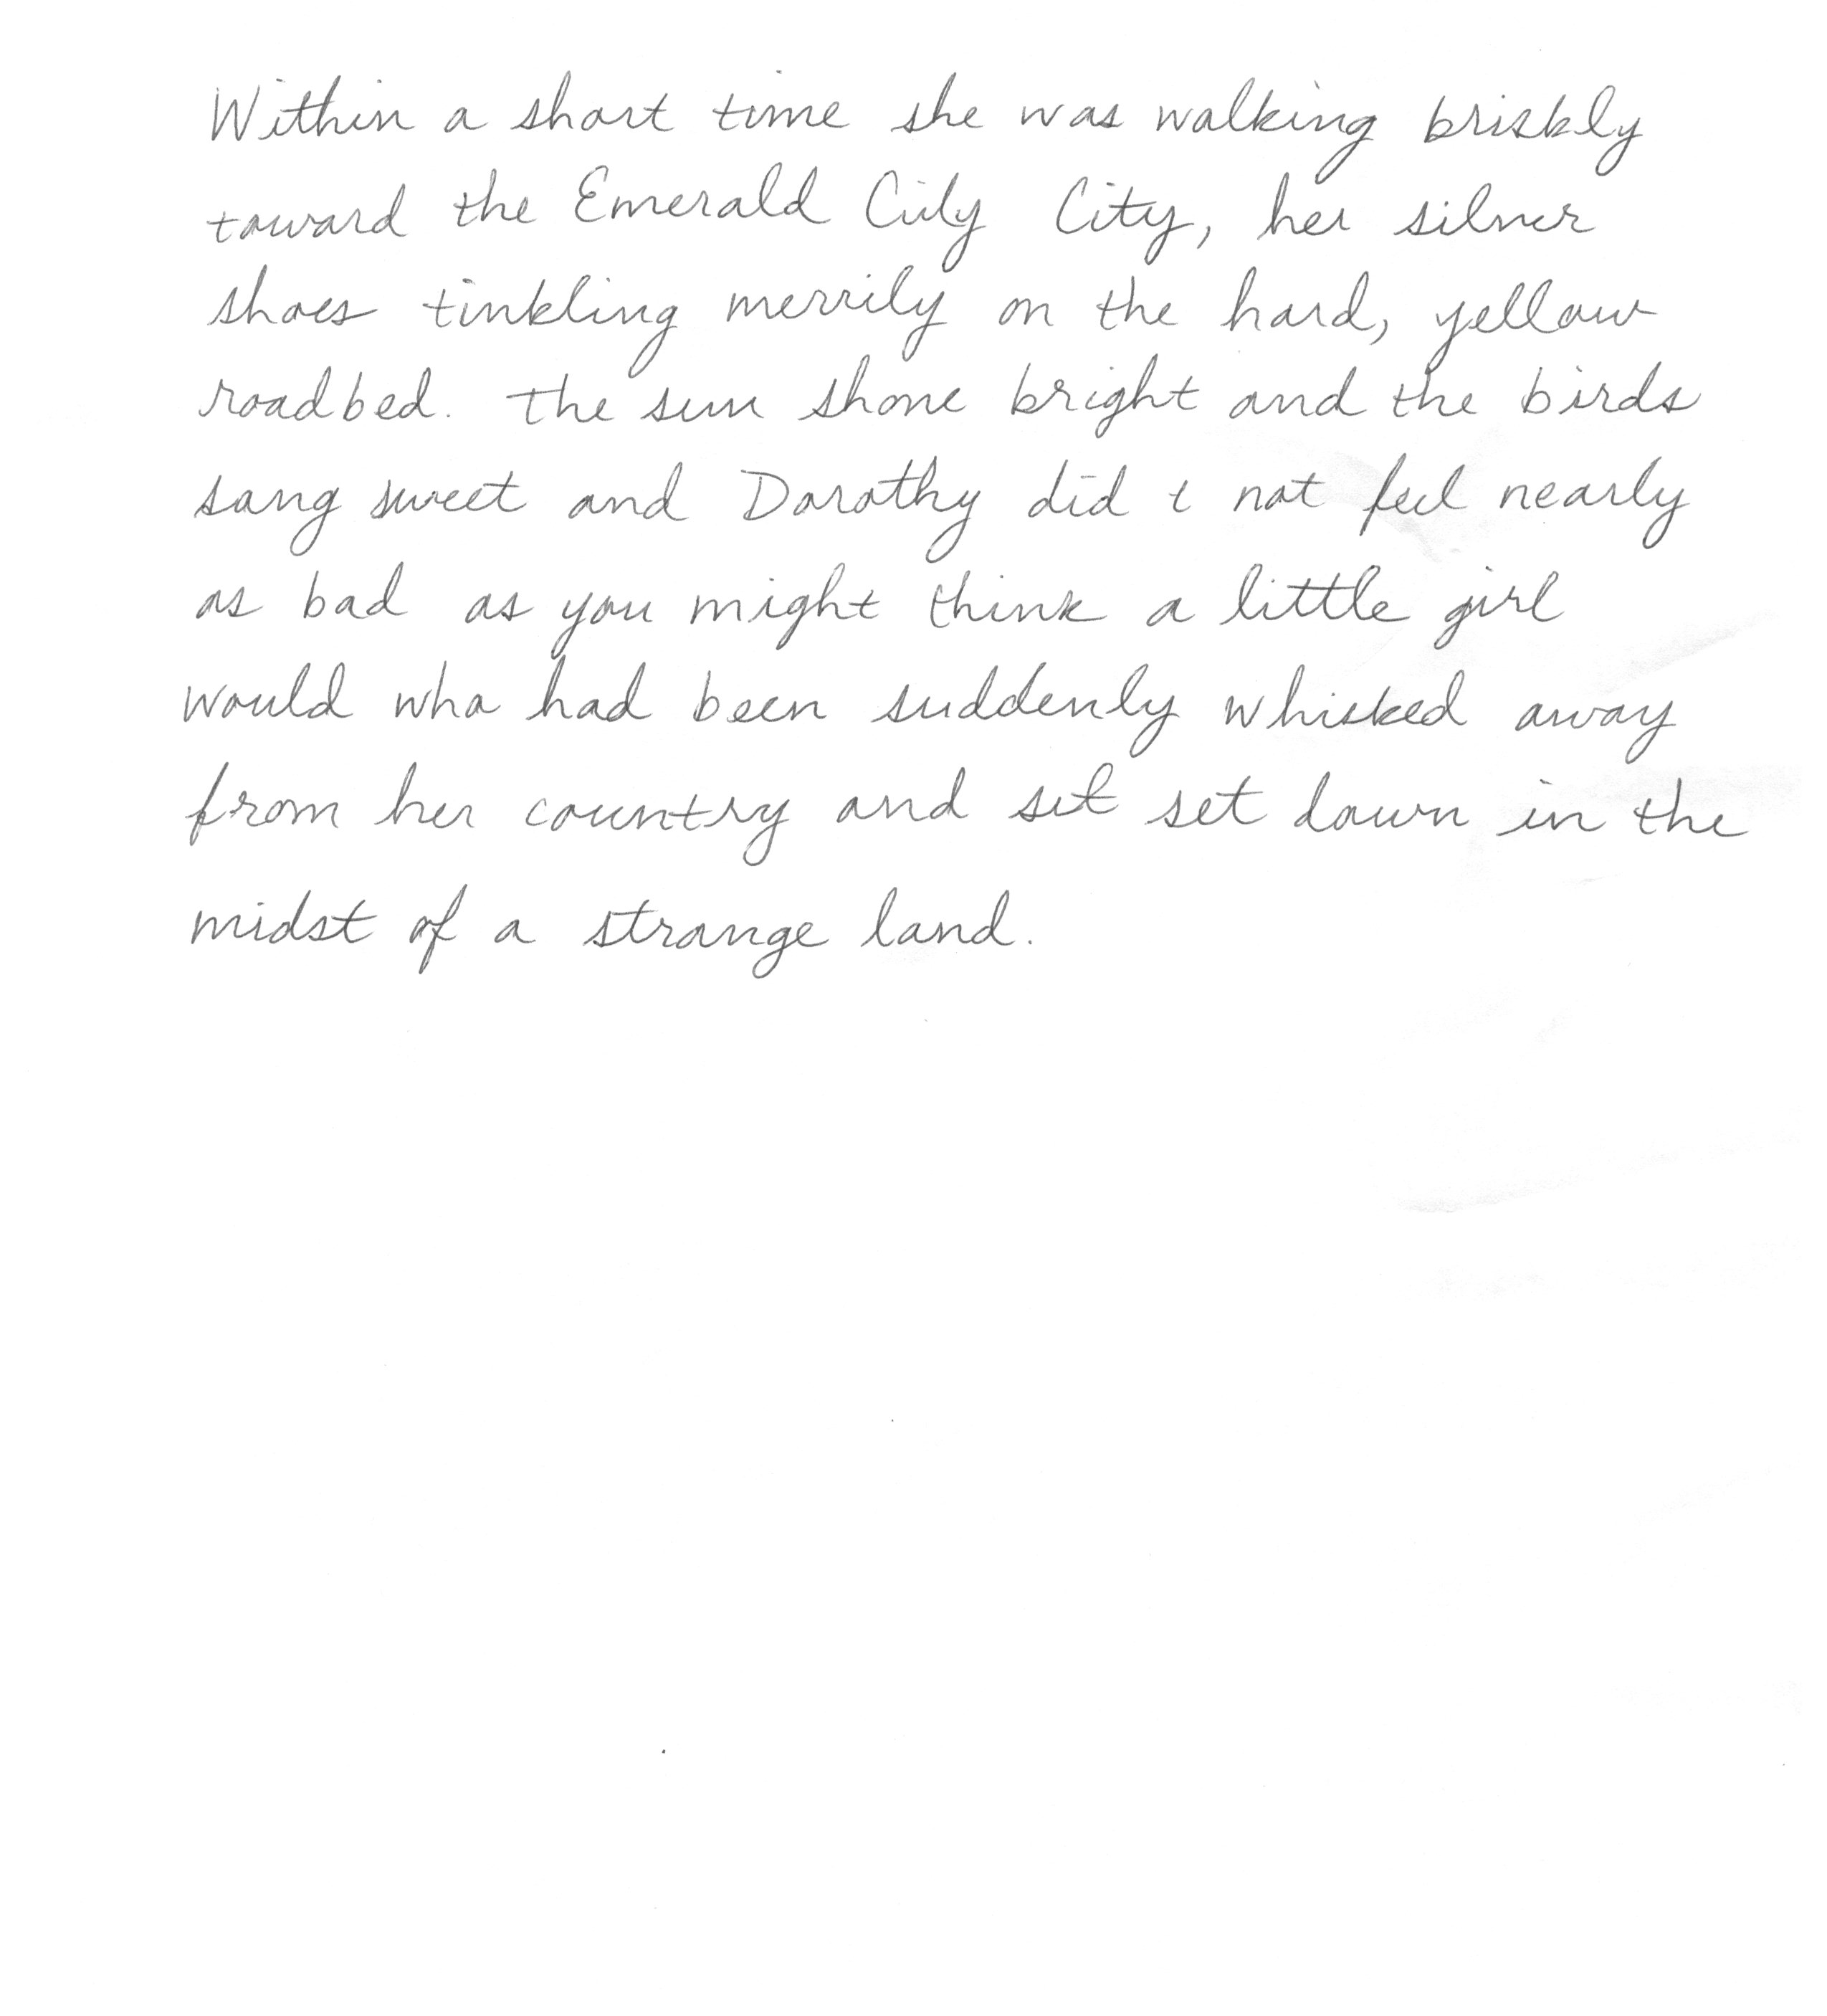 Within a short time she was walking briskly
toward the Emerald Cily City, her silver
shoes tinkling merrily on the hard, yellow
roadbed. The sun shone bright and the birds
sang sweet and Dorothy did t not feel nearly
as bad as you might think a little girl
would who had been suddenly whisked away
from her country and set set down in the
midst of a strange land.